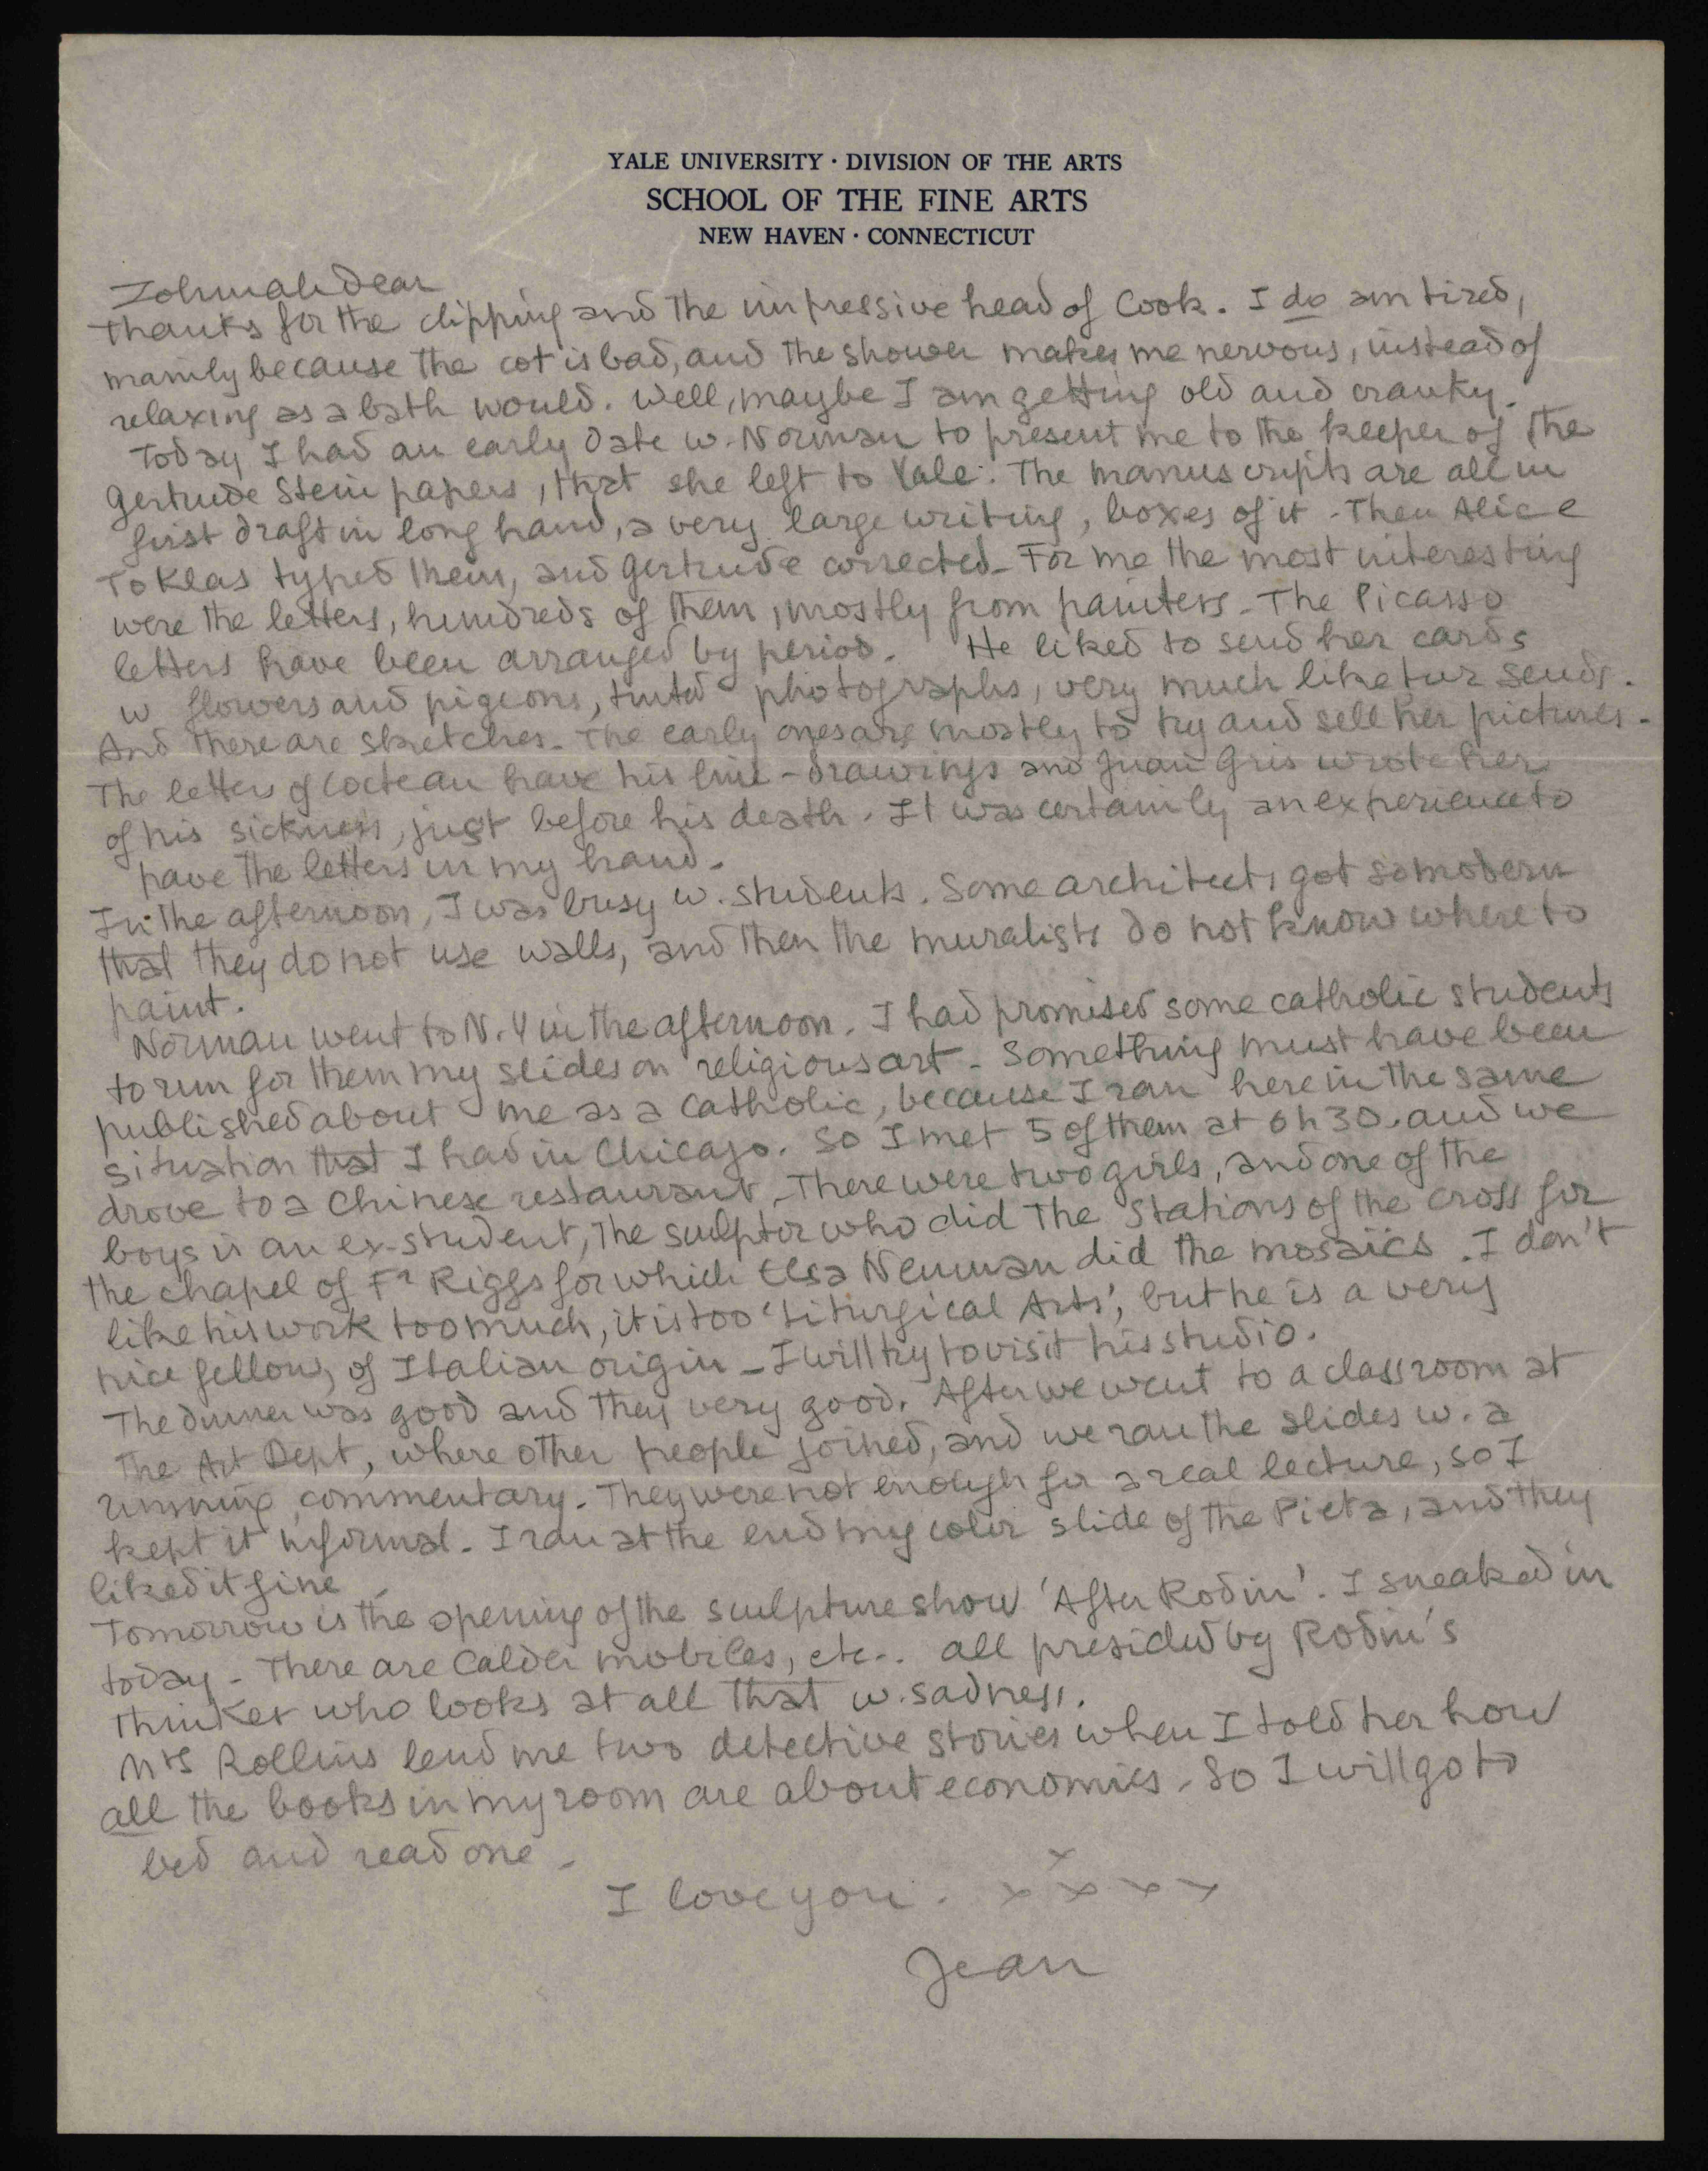 YALE UNIVERSITY · DIVISION OF THE ARTS
SCHOOL OF THE FINE ARTS
NEW HAVEN · CONNECTICUT
Zohmah dear
Thanks for the clipping and the impressive head of Cook. I do am tired,
mainly because the cot is bad, and the shower makes me nervous, instead of
relaxing as a bath would. Well, maybe I am getting old and cranky.
Today I had an early date w. Norman to present me to the keeper of the
Gertrude Stein papers, that she left to Yale. The manuscripts are all in
first draft in long hand, a very large writing, boxes of it. Then Alice
Toklas typed them, and Gertrude corrected. For me the most interesting
were the letters, hundreds of them, mostly from painters. The Picasso
letters have been arranged by period. He liked to send her cards
w flowers and pigeons, tinted photographs, very much like sends.
And there are sketches. The early ones are mostly to try and sell her pictures.
The letters of Cocteau have his line-drawings and Juan Gris wrote her
of his sickness, just before his death. It was certainly an experience to
have the letters in my hand.
In the afternoon, I was busy w. students. Some architects got so modern
that they do not use walls, and then the muralists do not know where to
paint.
Norman went to N.Y in the afternoon. I had promised some catholic students
to run for them my slides on religious art. Something must have been
published about me as a catholic, because I ran here in the same
situation that I had in Chicago. So I met 5 of them at 6h30. and we
drove to a Chinese restaurant. There were two girls, and one of the
boys is an ex-student, the sculptor who did the Stations of the Cross for
the chapel of Fr Riggs for which Elsa Neuman did the mosaics. I don't
like his work too much, it is too 'Liturgical Arts', but he is a very
nice fellow, of Italian origin – I will try to visit his studio.
The dinner was good and they very good. After we went to a classroom at
the Art Dept, where other people joined, and we ran the slides w. a
running commentary. They were not enough for a real lecture, so I
kept it informal. I ran at the end my color slide of the Pieta, and they
liked it fine.
Tomorrow is the opening of the sculpture show 'After Rodin'. I sneaked in
today. There are Calder mobiles, etc.. all presided by Rodin's
Thinker who looks at all that w. sadness.
Mrs Rollins lend me two detective stories when I told her how
all the books in my room are about economics. So I will go to
bed and read one.
I love you. x x x x x
Jean